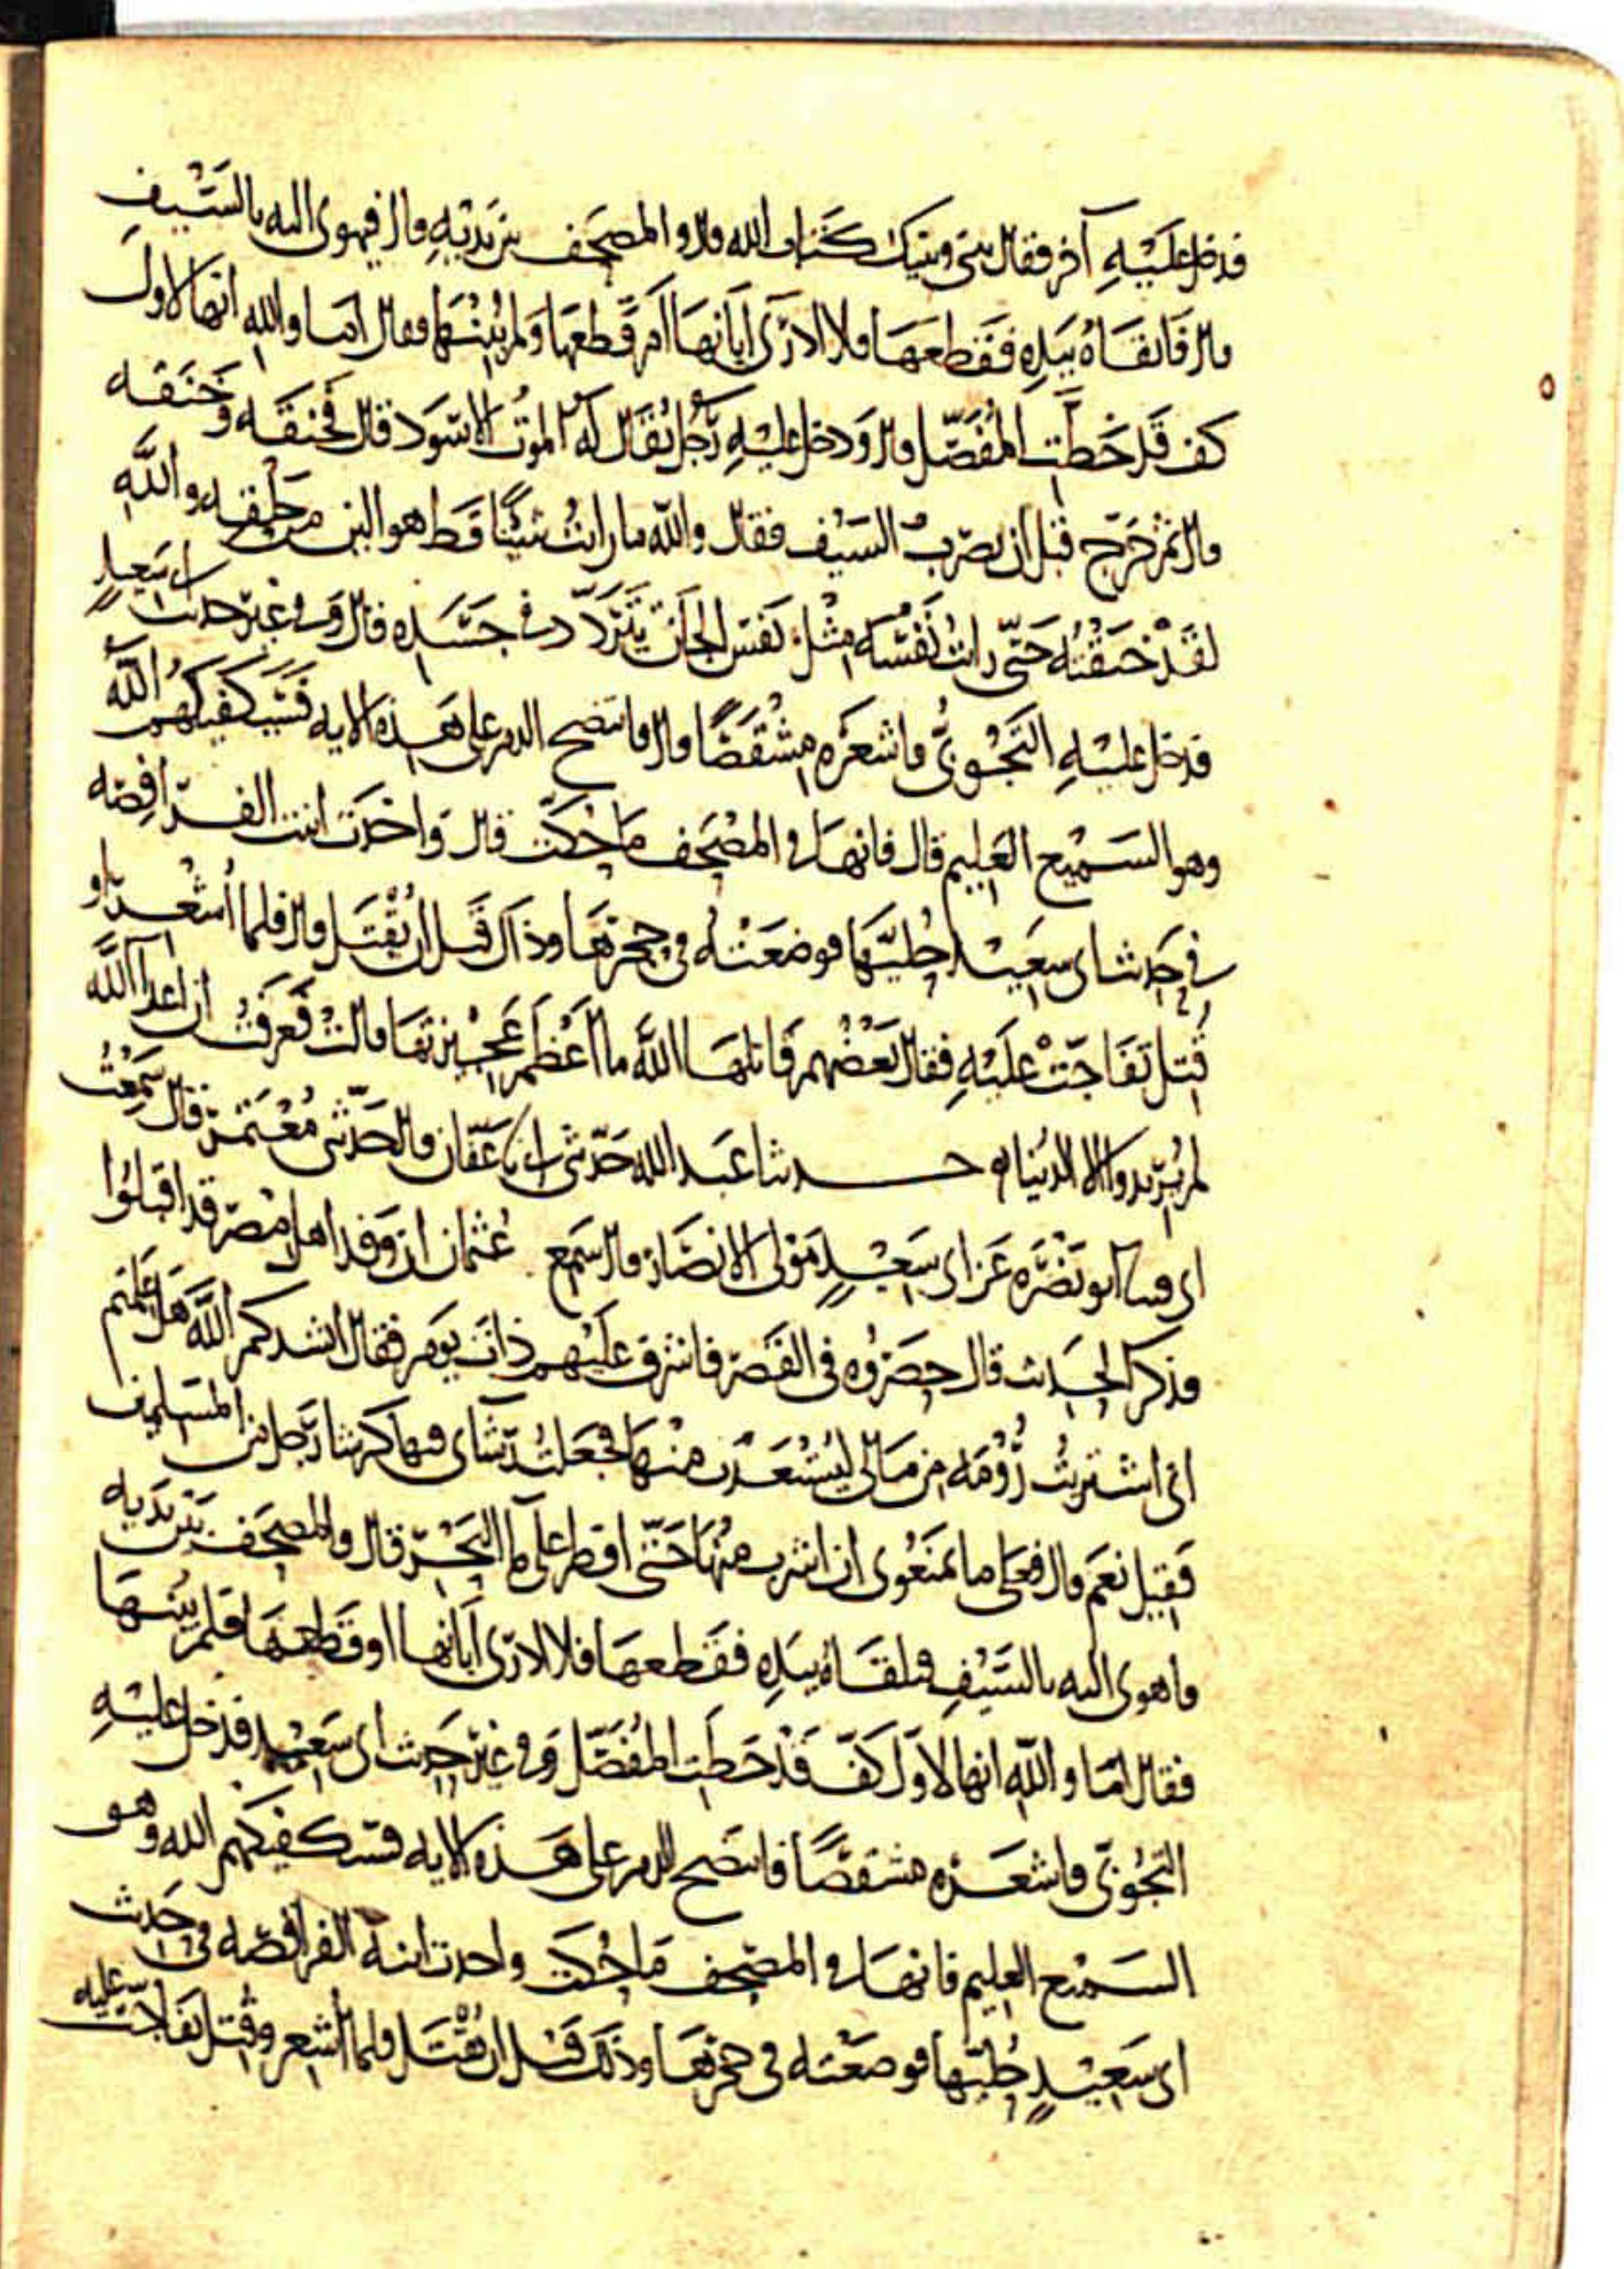 فدخل عليه آخر فقال بيني وبينك كتاب الله قال والمصحف بين يديه قال فيهوي اليه بالسيف
قال فاتقاه بيده فقطعها فلا ادري ابانها ام قطعها ولم يبنها فقال اما والله انها لاول
كف قد خطت المفصل قال ودخل عليه رجل يقال له الموت الاسود قال فخنقه وخنقه
قال ثم خرج قبل ان يضرب السيف فقال والله ما رايت شيئا قط هو الين من حلقه والله
لقد خنقته حتى رايت نفسه مثل نفس الجان يتردد في جسده قال وفي غير حديث ابي سعيد
فدخل عليه التجوبي فاشعره مشقصا قال فانتضح الدم على هذه الايه فسيكفيكهم الله
وهو السميع العليم قال فانها في المصحف ما حكت قال واخذت ابنت الفرافصه
في حديث ابي سعيد حليها فوضعته في حجرها وذاك قبل ان يقتل قال فلما اشعر او
قتل تفاجت عليه فقال بعضهم قاتلها الله ما اعظم عجيزتها قالت فعرفت ان اعدا الله
لم يريدوا الا الدنيا ه حدثنا عبد الله حدثني ابي نا عفان قال حدثني معتمر قال سمعت
ابي نا ابو نضره عن ابي سعيد مولى الانصار قال سمع عثمان ان وفد اهل مصر قد اقبلوا
فذكر الحديث قال حصروه في القصر فاشرف عليهم ذات يوم فقال انشدكم الله هل علمتم
اني اشتريت رومه من مالي ليستعذب منها فجعلت رشاي فيها كرشا رجل من المسلمين
فقيل نعم قال فعلى ما تمنعوني ان اشرب منها حتى افطر على ما البحر قال والمصحف بين يديه
فاهوى اليه بالسيف فتلقاه بيده فقطعها فلا ادري ابانها او قطعها فلم يبنها
فقال اما والله انها لاول كف قد خطت المفصل وفي غير حديث ابي سعيد فدخل عليه
التجوبي فاشعره مشقصا فانتضح الدم على هذه الايه فسيكفيكهم الله وهو
السميع العليم فانها في المصحف ما حكت واخذت ابنة الفرافصه في حديث
ابي سعيد حليها فوضعته في حجرها وذلك قبل ان يقتل فلما اشعر وقتل تفاجت عليه